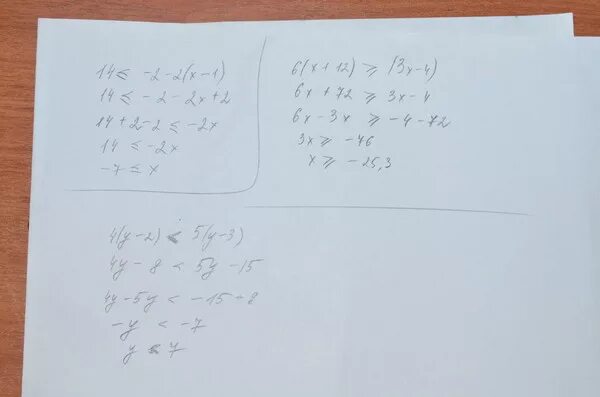 14 ≤ -2-2(x-1)
14 ≤ -2-2x+2
14+2-2 ≤ -2x
14 ≤ -2x
-7 ≤ x
6(x+12) ≥ (3x-4)
6x+72 ≥ 3x-4
6x-3x ≥ -4-72
3x ≥ -76
x ≥ -25,3
4(y-2) < 5(y-3)
4y-8 < 5y-15
4y-5y < -15+8
-y < -7
y < 7